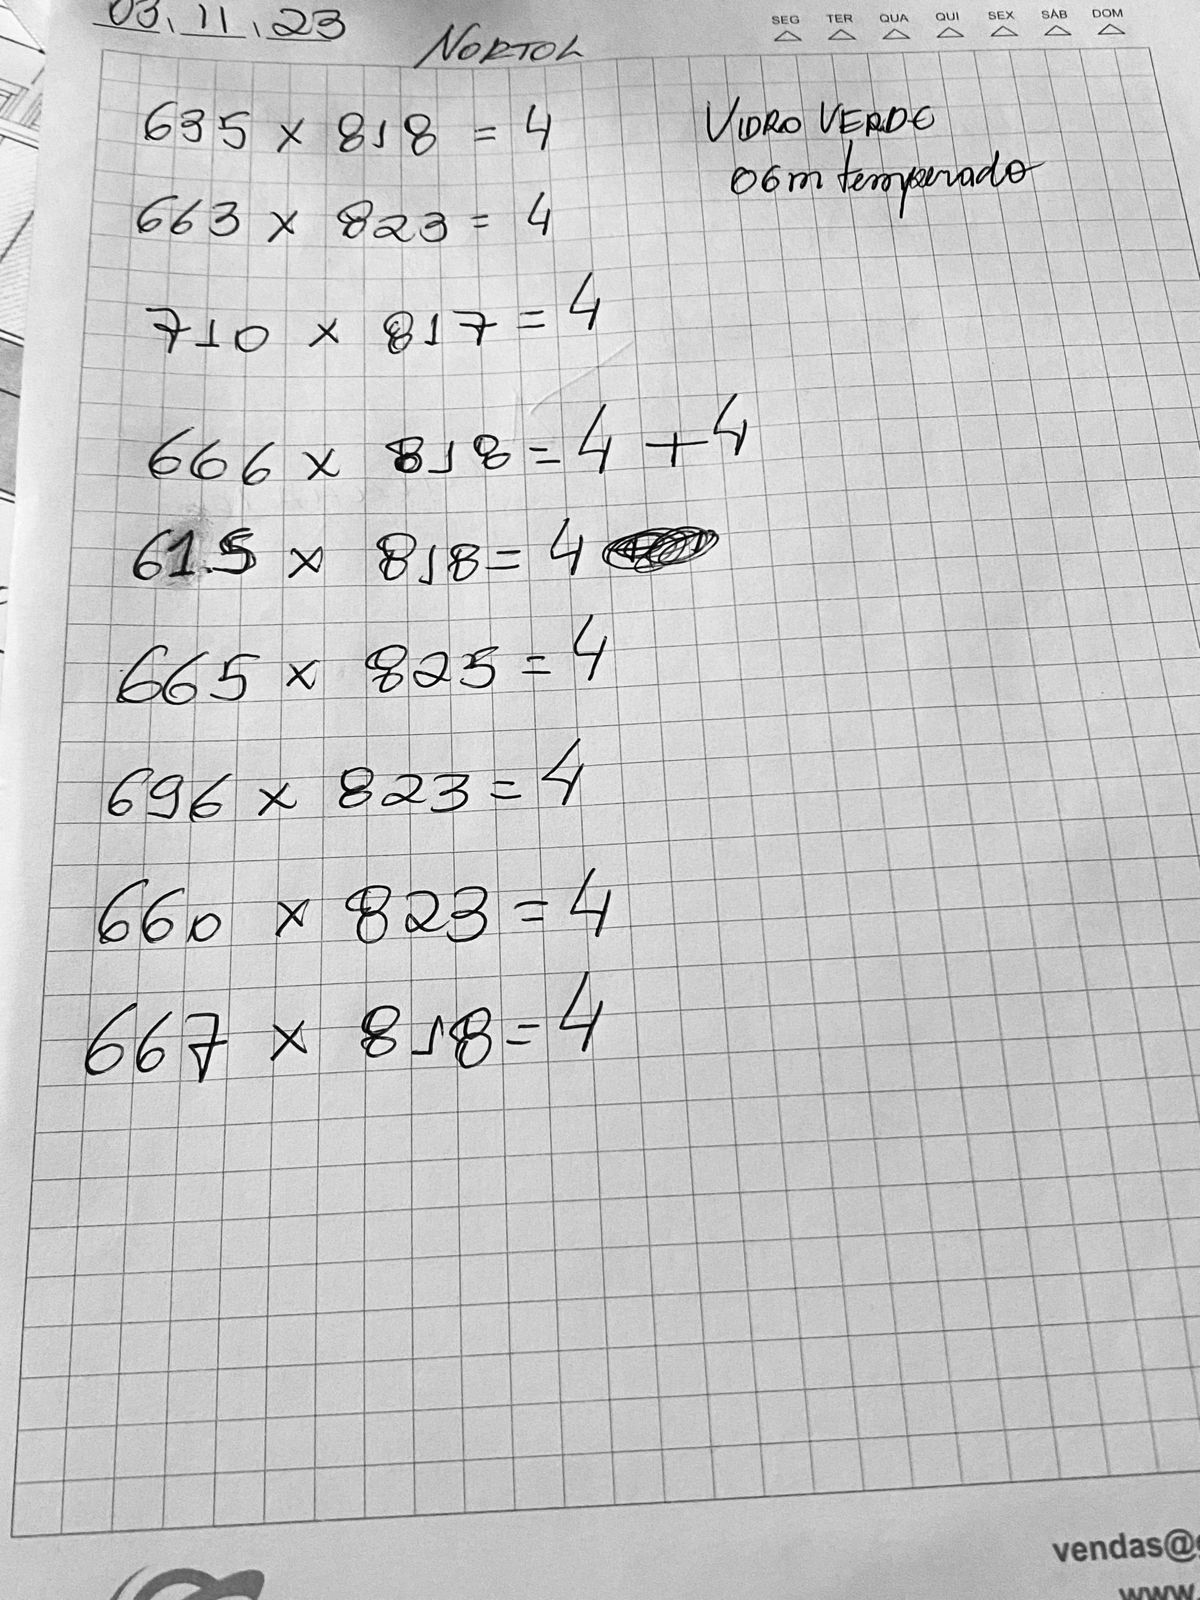 03. 11. 23
NORTOL
SEG TER QUA QUI SEX SÁB DOM
635 x 818 = 4
VIDRO VERDE
06m temperado
663 x 823 = 4
710 x 817 = 4
666 x 818 = 4 + 4
615 x 818 = 4
665 x 825 = 4
696 x 823 = 4
660 x 823 = 4
667 x 818 = 4
vendas@
www.